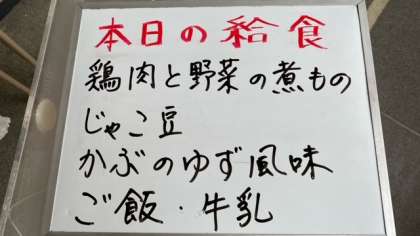 本日の給食
鶏肉と野菜の煮もの
じゃこ豆
かぶのゆず風味
ご飯・牛乳